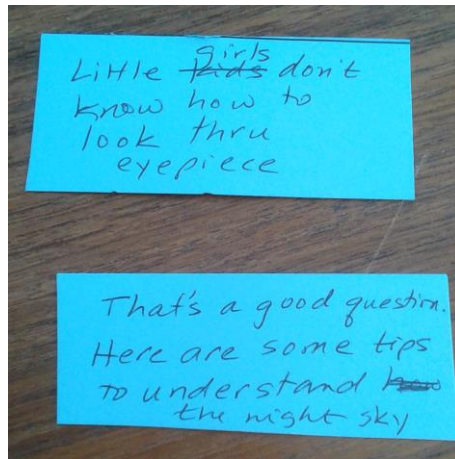 girls
Little kids don't
know how to
look thru
eyepiece
That's a good question.
Here are some tips
to understand how
the night sky